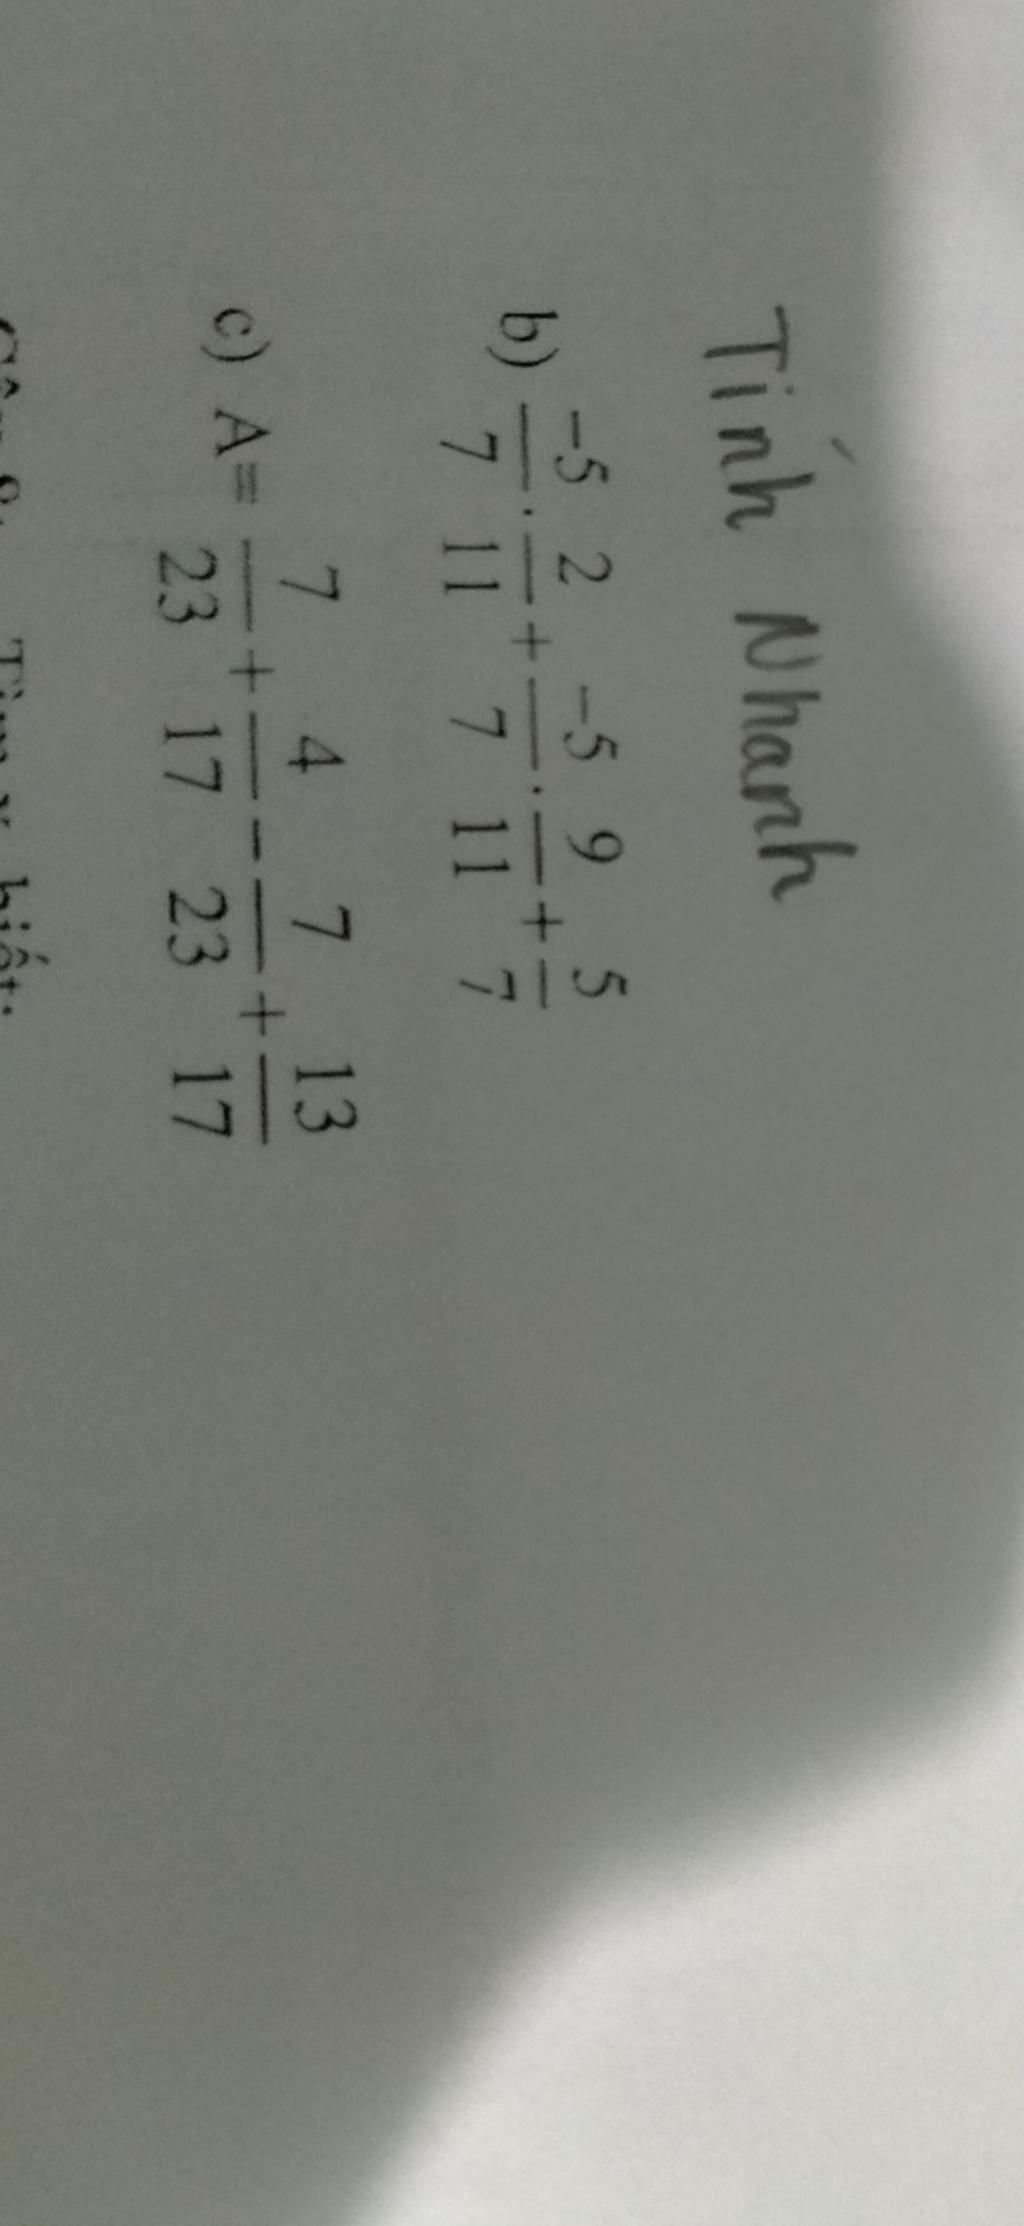 Tính Nhanh
b) -5/7 . 2/11 + -5/7 . 9/11 + 5/7
c) A = 7/23 + 4/17 - 7/23 + 13/17
Tìm x biết: